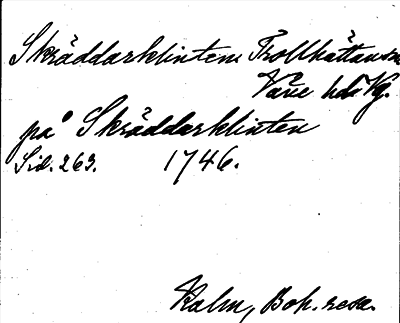 Skräddarklinten Trollhättan
Väne hd Vg.
på Skräddarklinten
Sid. 263. 1746.
Kalm, Boh. resa.